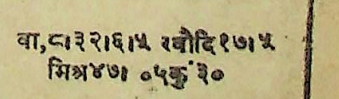 वा,८।३२।६।५ रवौदि१७।५
मिश्र४७। ०५कुं ३०